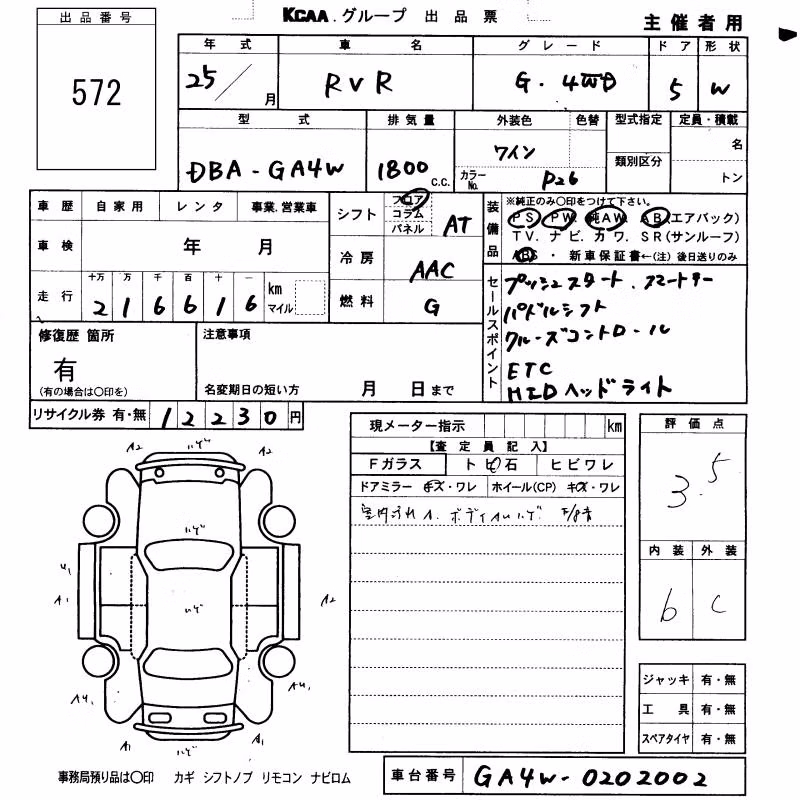 出品番号
572
KCAA.グループ 出品票
主催者用
年式 車名 グレード ドア 形状
25/ 月 RVR G.4WD 5 W
型式 排気量 外装色 色替 型式指定 定員・積載
DBA-GA4W 1800 C.C. ワイン 類別区分 名
カラーNo. P26 トン
車歴 自家用 レンタ 事業.営業車
車検 年 月
走行 十万 万 千 百 十 一
2 1 6 6 1 6 km マイル
シフト フロア コラム パネル AT
冷房 AAC
燃料 G
装備品
※純正のみ〇印をつけて下さい。
PS PW 純AW. AB(エアバック)
TV. ナビ. カワ. SR(サンルーフ)
ABS ・ 新車保証書←(注) 後日送りのみ
セールスポイント
プッシュスタート.スマートキー
パドルシフト
クルーズコントロール
ETC
HIDヘッドライト
修復歴 箇所
有
(有の場合は〇印を)
注意事項
名変期日の短い方 月 日まで
リサイクル券 有・無 12230円
現メーター指示 km
【査定員記入】
Fガラス トビ石 ヒビワレ
ドアミラー キズ・ワレ ホイール(CP) キズ・ワレ
評価点
3.5
内装 外装
b C
A2 いぜ A2
いぜ
U1
A1 いぜ A2
A4, A4,
A1 いぜ A1
ジャッキ 有・無
工具 有・無
スペアタイヤ 有・無
事務局預り品は〇印 カギ シフトノブ リモコン ナビロム
車台番号 GA4W-0202002